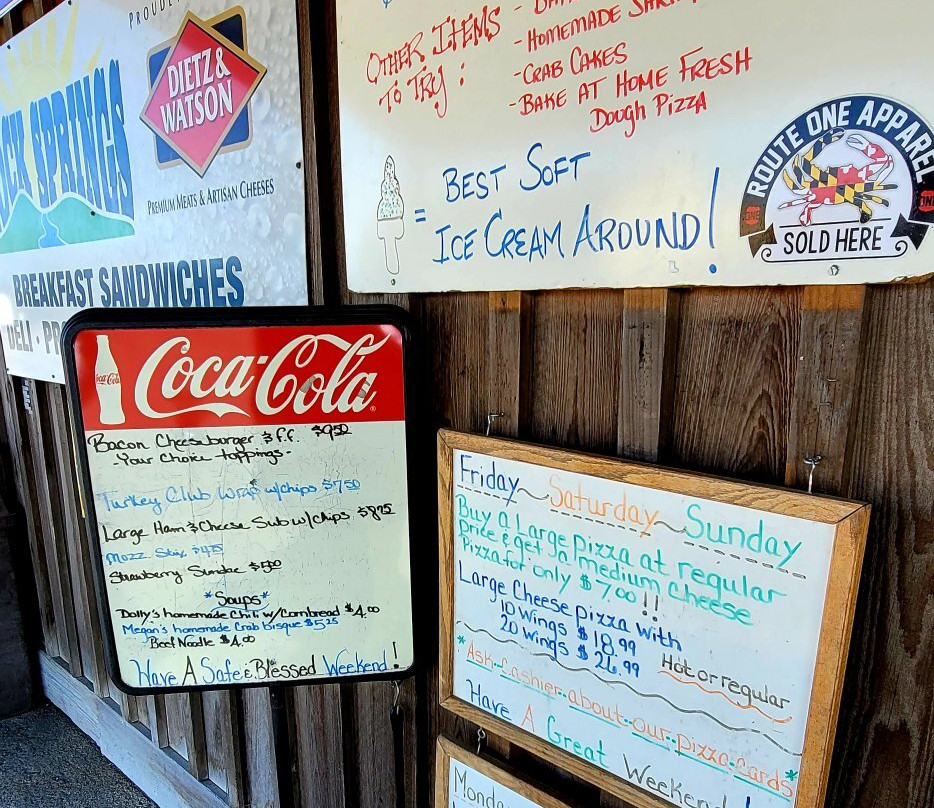 PROUDLY
DIETZ &
WATSON
PREMIUM MEATS & ARTISAN CHEESES
SPRINGS
BREAKFAST SANDWICHES
DELI
OTHER ITEMS
TO TRY:
- HOMEMADE
- CRAB CAKES
- BAKE AT HOME FRESH
DOUGH PIZZA
= BEST SOFT
ICE CREAM AROUND!
ROUTE ONE APPAREL
ONE
ONE
SOLD HERE
Coca-Cola
Coca-Cola
Bacon Cheeseburger & f.f. $9.50
- Your Choice toppings -
Turkey Club Wrap w/chips $7.50
Large Ham & Cheese Sub w/chips $8.75
Mozz. Stix
Strawberry Sundae $5.00
*Soups*
Dolly's homemade Chili w/Cornbread $4.00
Megan's homemade Crab bisque $5.25
Beef Noodle $4.00
Have A Safe & Blessed Weekend!
Friday ~ Saturday ~ Sunday
Buy a Large pizza at regular
price & get a medium cheese
pizza for only $7.00!!
Large Cheese pizza with
10 wings $18.99
20 wings $26.99
Hot or regular
*Ask cashier about our pizza cards*
Have A Great Weekend!
Monday